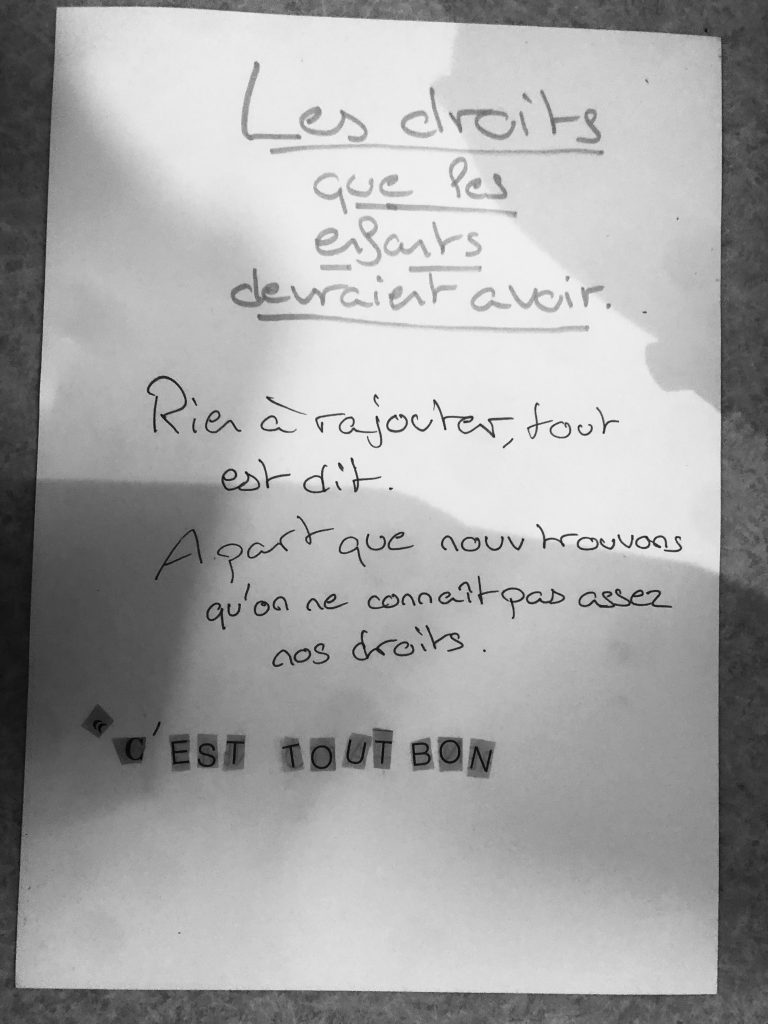 Les droits
que les
enfants
devraient avoir.
Rien à rajouter, tout
est dit.
A part que nouv trouvons
qu'on ne connaît pas assez
nos droits.
« C'EST TOUT BON